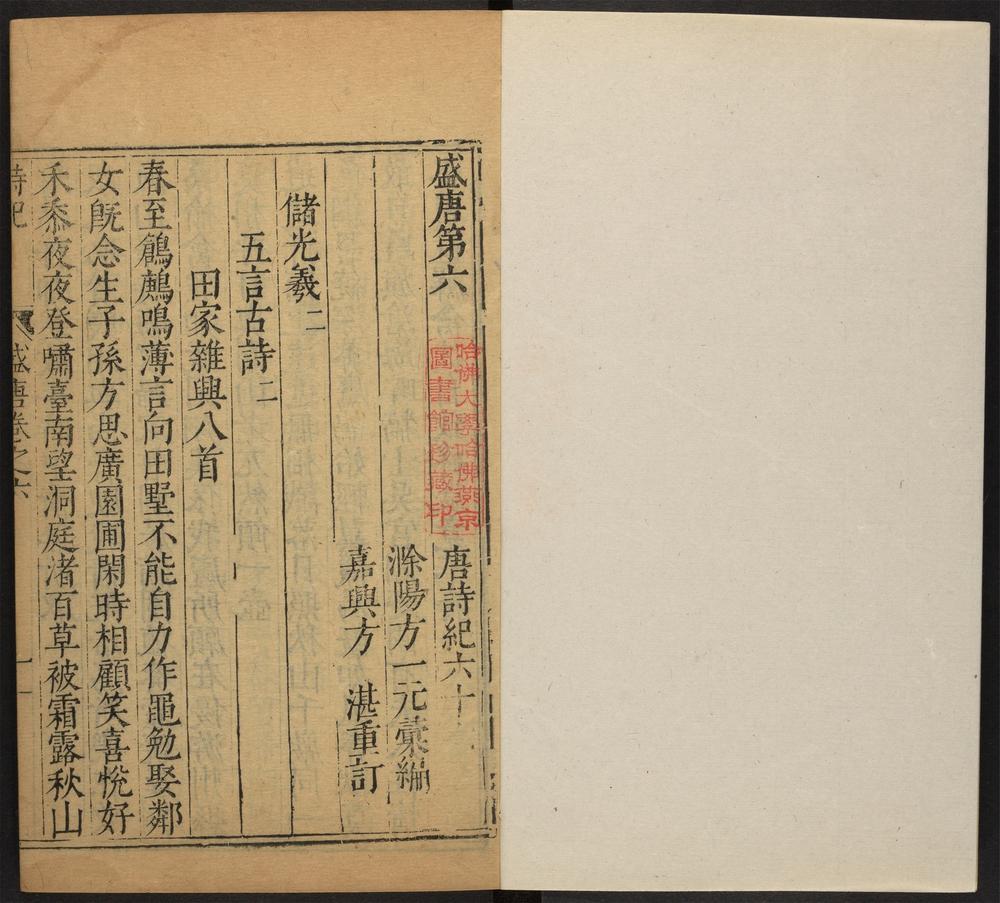 盛唐第六
唐詩紀六十
滁陽方一元彙編
嘉興方湛重訂
儲光羲二
五言古詩二
田家雜興八首
春至鶬鶊鳴薄言向田墅不能自力作黽勉娶鄰
女旣念生子孫方思廣園圃閑時相顧笑喜悅好
禾黍夜夜登嘯臺南望洞庭渚百草被霜露秋山
詩紀
盛唐卷之六
一
哈佛大學哈佛燕京
圖書館珍藏印